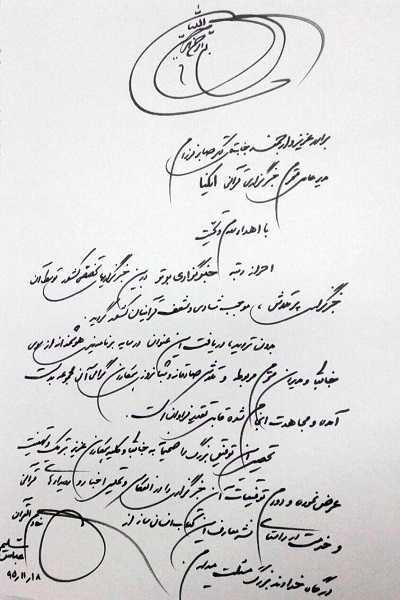 بسم الله الرحمن الرحیم
برادر عزیز و ارجمند جناب آقای دکتر صابر فرزام
مدیر عامل محترم خبرگزاری قرآنی ایکنا
با اهداء سلام و تحیت
احراز رتبه خبرگزاری برتر در بین خبرگزاریهای تخصصی کشور توسط آن
خبرگزاری پرتلاش، موجب شادی و شعف قرآنیان کشور گردید.
بدون تردید، دریافت این عنوان در سایه برنامه‌ریزی هوشمندانه از سوی
جنابعالی و مدیران محترم مربوط و تلاش صادقانه و شبانروزی همکاران گرامی آن مجموعه بدست
آمده و مجاهدت انجام شده قابل تقدیر فراوان است.
تحصیل این توفیق بزرگ را صمیمانه به جنابعالی و کلیه همکاران عزیز تبریک و تهنیت
عرض نموده و دوام توفیقات آن خبرگزاری را در انعکاس و تحلیل اخبار و رویدادهای قرآنی
و خدمت در راستای نشر معارف این کتاب انسان‌ساز از
درگاه خداوند بزرگ مسئلت میدارم.
خادم القرآن
عباس سلیمی
۹۵/۱۱/۱۸